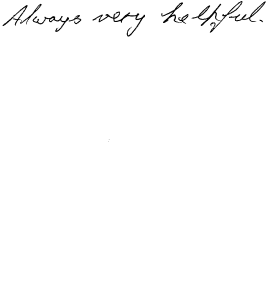 Always very helpful.